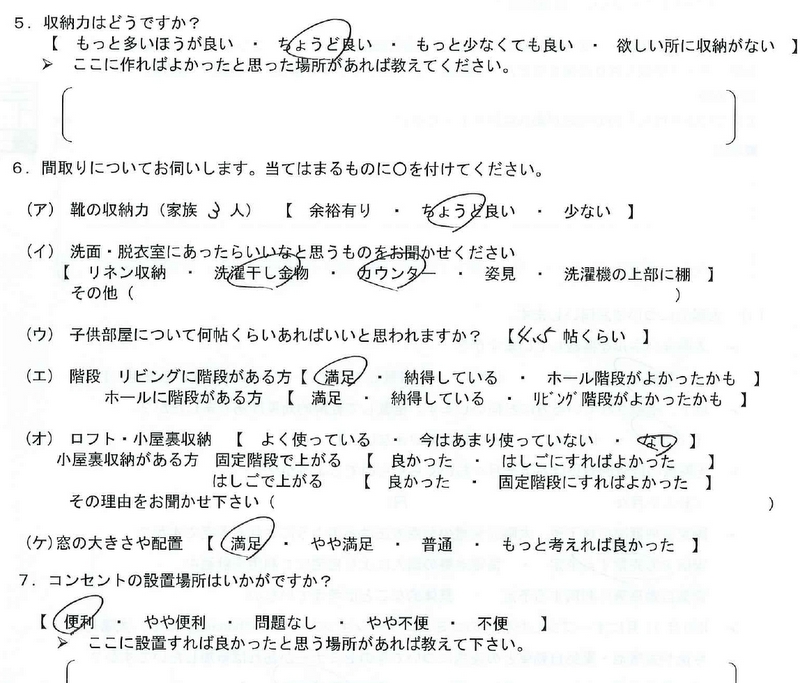 ５．収納力はどうですか？
【　もっと多いほうが良い　・　ちょうど良い　・　もっと少なくても良い　・　欲しい所に収納がない　】
➢　ここに作ればよかったと思った場所があれば教えてください。
６．間取りについてお伺いします。当てはまるものに〇を付けてください。
（ア）　靴の収納力（家族　3　人）　【　余裕有り　・　ちょうど良い　・　少ない　】
（イ）　洗面・脱衣室にあったらいいなと思うものをお聞かせください
【　リネン収納　・　洗濯干し金物　・　カウンター　・　姿見　・　洗濯機の上部に棚　】
その他（　　　　　　　　　　）
（ウ）　子供部屋について何帖くらいあればいいと思われますか？　【4.5 帖くらい　】
（エ）　階段　リビングに階段がある方【　満足　・　納得している　・　ホール階段がよかったかも　】
ホールに階段がある方　【　満足　・　納得している　・　ﾘﾋﾞﾝｸﾞ階段がよかったかも　】
（オ）　ロフト・小屋裏収納　【　よく使っている　・　今はあまり使っていない　・　なし　】
小屋裏収納がある方　固定階段で上がる　【　良かった　・　はしごにすればよかった　　】
はしごで上がる　　【　良かった　・　固定階段にすればよかった　】
その理由をお聞かせ下さい（　　　　　　　　　　）
（ケ）窓の大きさや配置　【　満足　・　やや満足　・　普通　・　もっと考えれば良かった　】
７．コンセントの設置場所はいかがですか？
【　便利　・　やや便利　・　問題なし　・　やや不便　・　不便　　】
➢　ここに設置すれば良かったと思う場所があれば教えて下さい。